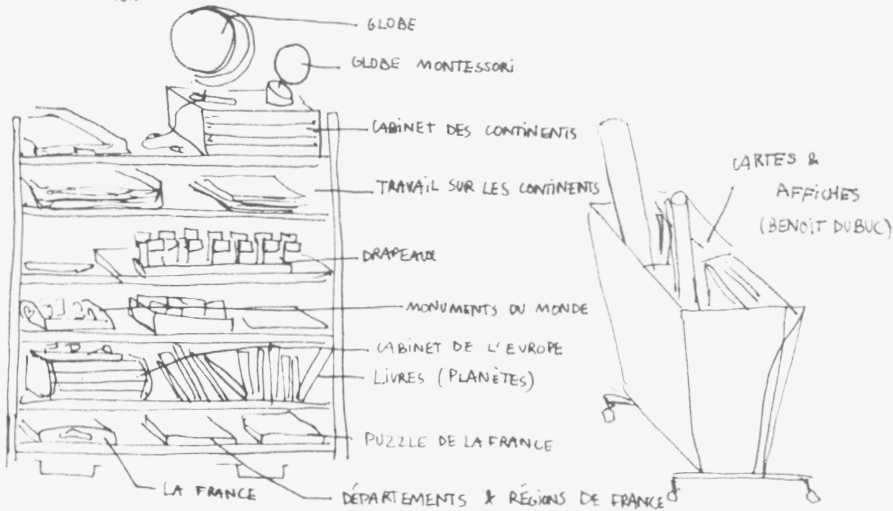 GLOBE
GLOBE MONTESSORI
CABINET DES CONTINENTS
TRAVAIL SUR LES CONTINENTS
DRAPEAUX
MONUMENTS DU MONDE
CABINET DE L'EUROPE
LIVRES (PLANÈTES)
PUZZLE DE LA FRANCE
LA FRANCE
DÉPARTEMENTS & RÉGIONS DE FRANCE
CARTES &
AFFICHES
(BENOÎT DUBUC)